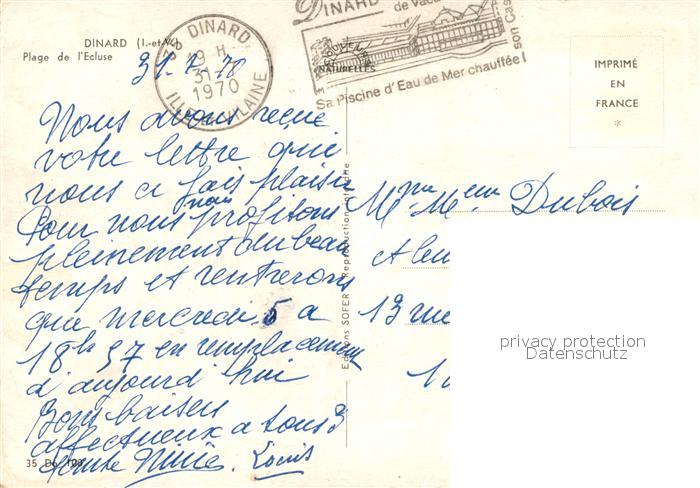 DINARD (I.-et-V.)
Plage de l'Ecluse
31.7.70
DINARD
19 H
31-7
1970
ILLE-VILAINE
DINARD
de vaca
NATURELLES
son Cas
Sa Piscine d'Eau de Mer chauffée !
IMPRIMÉ
EN
FRANCE
*
Nous avons reçue
votre lettre qui
nous a fais plaisir
Pour nous nous profitons
pleinement du beau
temps et rentrerons
que mercredi 5 a
18h 57 en remplacement
d'aujourd'hui
Bons baisers
affectueux a tous 3
Tante Ninie. Louis
35 De 100
Editions SOFER Reproduction interdite
Mme Mr Dubois
et leu
13 rue
privacy protection
Datenschutz